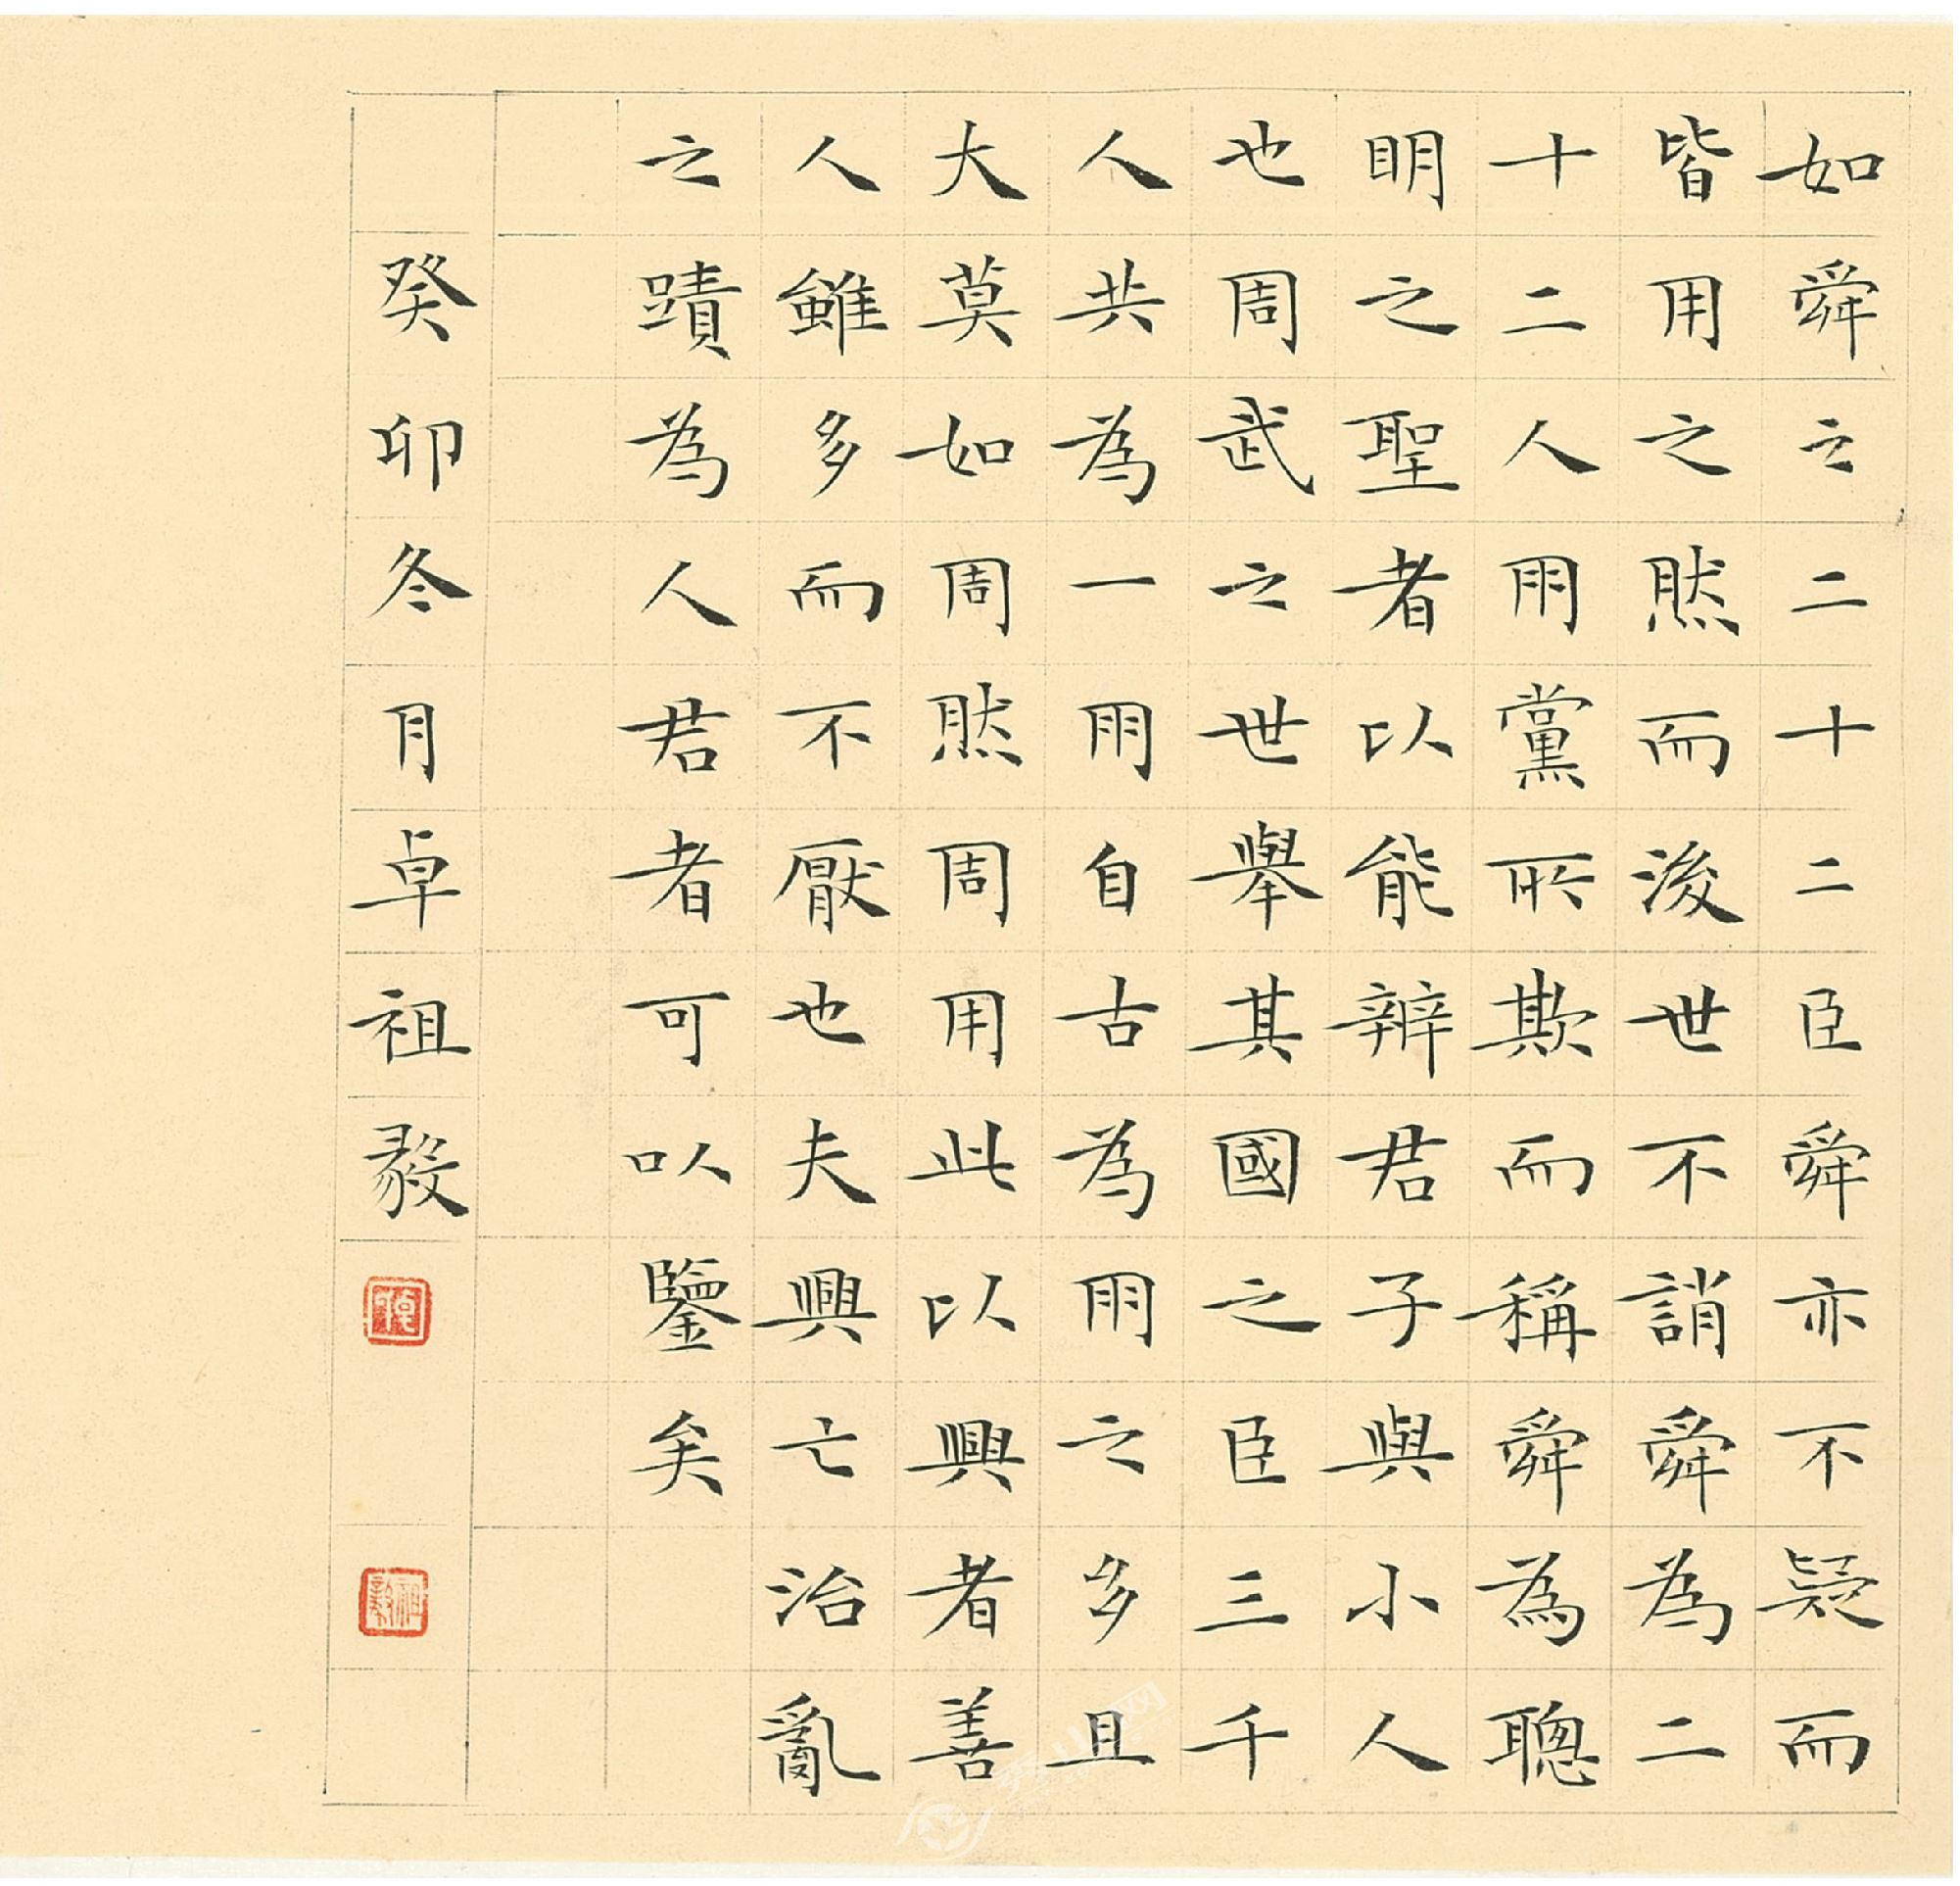 如舜之二十二臣舜亦不疑而
皆用之然而後世不誚舜為二
十二人朋黨所欺而稱舜為聰
眀之聖者以能辨君子與小人
也周武之世舉其國之臣三千
人共為一朋自古為朋之多且
大莫如周然周用此以興者善
人雖多而不厭也夫興亡治亂
之蹟為人君者可以鑒矣
癸卯冬月卓祖毅
祖毅